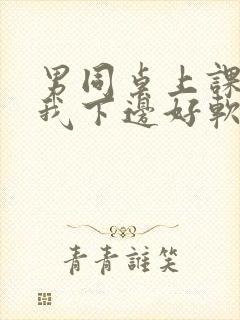 男同桌上課
我下邊好軟
青青誰笑